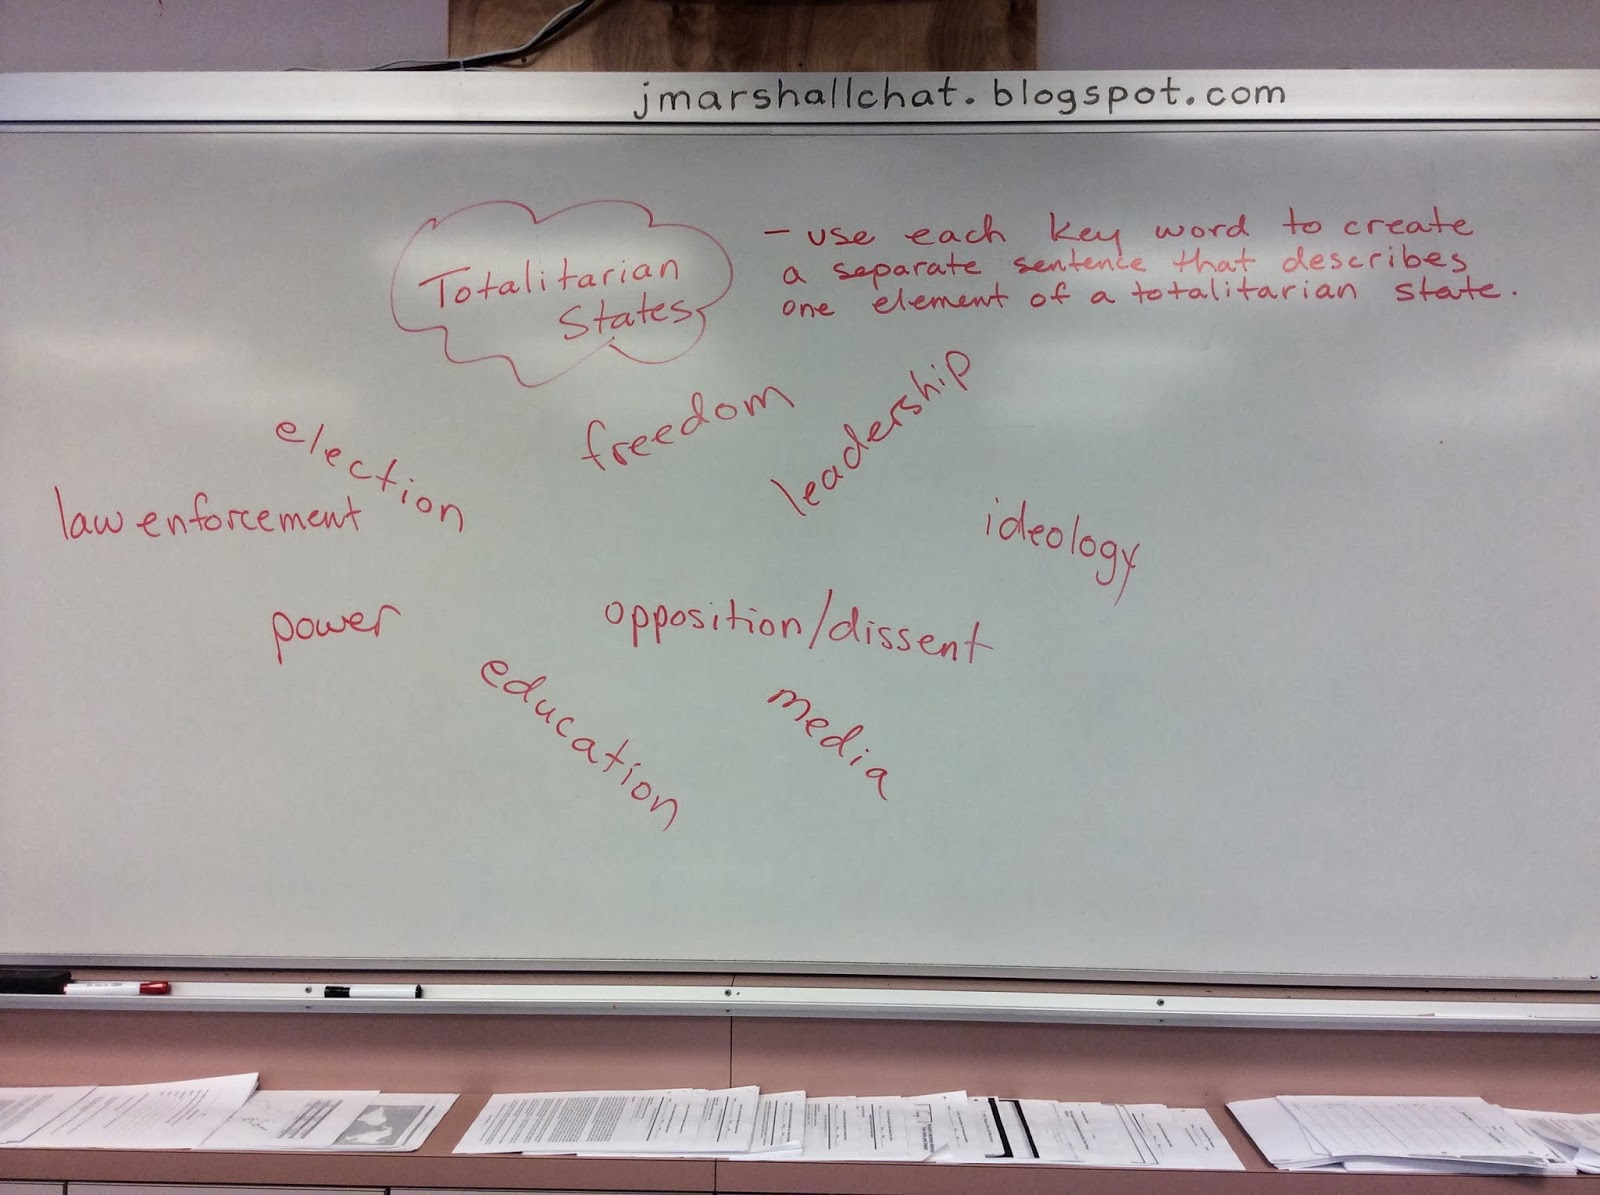 jmarshallchat.blogspot.com
Totalitarian
States
- use each key word to create
a separate sentence that describes
one element of a totalitarian state.
election
freedom
leadership
law enforcement
ideology
power
opposition/dissent
education
media